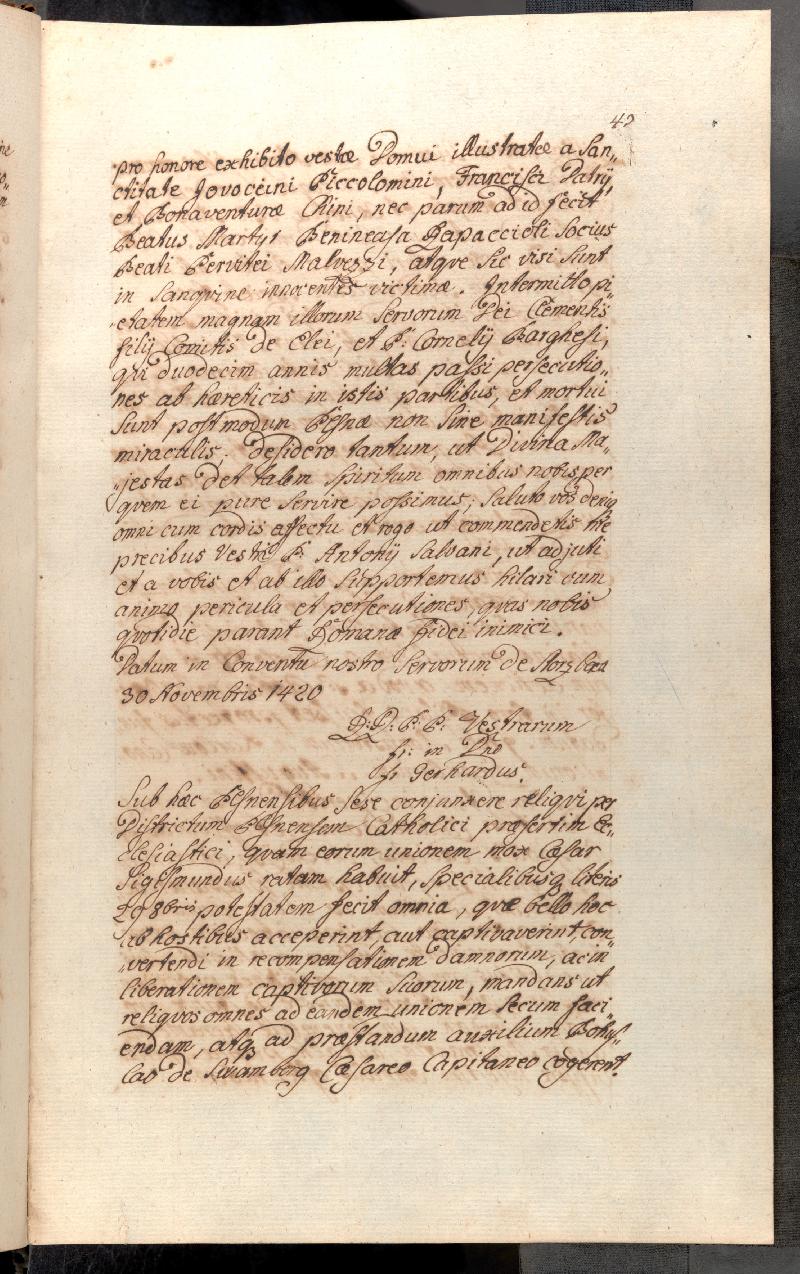 42
pro honore exhibito vestræ Domui illustratæ a San„
ctitate Jovoceini Piccolomini, Francisci Patrij,
et Bonaventuræ Chini, nec parum ad id fecit
Beatus Martyr Benincasa Rapaccioli Socius
Beati Pervitei Malvezzi, atque sic visi sunt
in Sangvine innocentes victimæ. Intermitto pi„
„etatem magnam illorum Servorum Dei Clementis
filij Comitis de Elei, et P: Cornelij Barghesi,
qvi duodecim annis multas passi persecutio„
nes ab hæreticis in istis partibus, et mortui
sunt postmodum Pesnæ non sine manifestis
miraculis. desidero tantum, ut Divina Ma„
„jestas det talem spiritum omnibus nobis, per
qvem ei pure servire possimus; saluto vos deniq
omni cum cordis affectu et rogo ut commendetis me
precibus Vestri P. Antonij Salvani, ut adjuti
et a vobis et ab illo supportemus hilari cum
animo pericula et persecutiones, qvas nobis
qvotidie parant Romanæ fidei inimici.
Datum in Conventu nostro Servorum de
30 Novembris 1420
R:D: P. P: Vestrarum
fr: in Dno
fr Gerhardus.
Sub hæc Pesnensibus sese conjunxere reliqvi per
Districtum Pesnensem Catholici præsertim Ec„
clesiastici, qvam eorum unionem mox Cæsar
Sigesmundus ratam habuit, specialibusq literis
29 8bris potestatem fecit omnia, qvæ bello hoc
ab hostibus acceperint, aut captivaverint, con„
„vertendi in recompensationem damnorum, ac in
liberationem captivorum suorum, mandans ut
reliqvos omnes ad eandem unionem secum faci„
endam, atq ad præstandum auxilium Bohus„
lao de Swamberg Cæsareo Capitaneo cogerent.